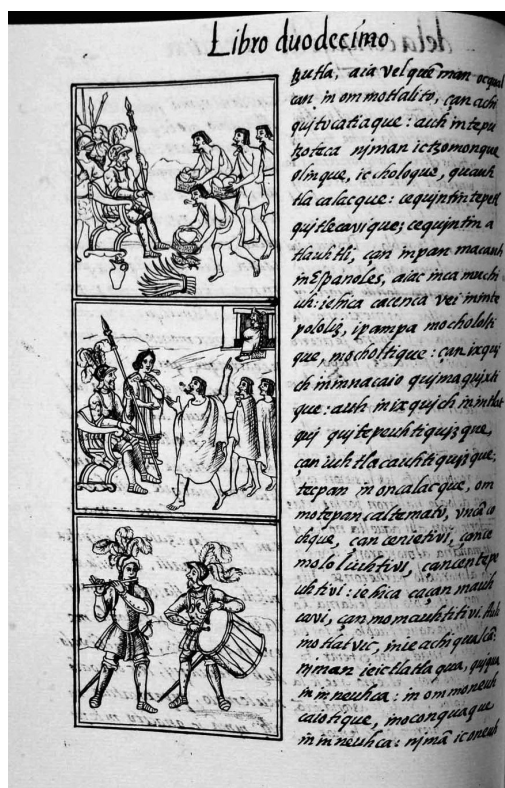 Libro duodecimo
tzutla, aia vel quēman ocqual
can in ommotlalito, çan achi
quitocatiaque: auh in tepu
tzoteca njman ic tzomonque
olinque, ic choloque, quauh
tla calacque: cequintin tepetl
quitlecavique; cequintin a
tlauhtli, çan inpan macauh
in Españoles, aiac inca muchi
uh: iehica cacenca vei in inte
pololiz, ipampa mochololti
que, mocholtique: çan ixqui
ch in innacaio quimaquixti
que: auh in ixquich in intlat
qui quitepeuhtiquizque,
çan iuh tlacauhtiquizque;
tecpan in oncalacque, om
motepancaltemato, vncā co
chque, çan cenietivi, çance
mololiuhtivi, çancentepe
uhtivi: iehica caçan mauh
cavi, çan momauhtitivi. Auh
motlatvic, in ie achi qualcā:
njman ie ic tlatlaqua, quiqua
in inneuhca: in ommoneuh
caiotique, in oconquaque
in inneuhca: njmā ic oneuh